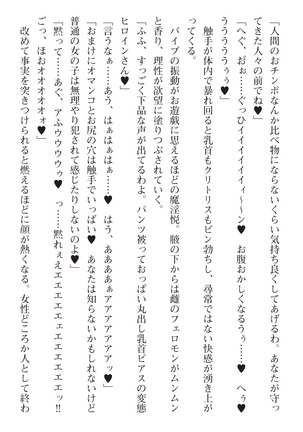 「人間のおチンポなんか比べ物にならないくらい気持ち良くしてあげるわ。あなたが守っ
てきた人々の前でね♥」
「へぐ、おぉ……ぐっひイイイイイイィ～～ン♥　お腹おかしくなるうぅ……♥　へぅ♥
うううううぅ♥」
　触手が体内で暴れ回ると乳首もクリトリスもビン勃ちし、尋常ではない快感が湧き上が
ってくる。
　バイブの振動がお遊戯に思えるほどの魔淫悦。腋の下からは雌のフェロモンがムンムン
と香り、理性が欲望に塗りつぶされていく。
「ふふ、すっごく下品な声が出てるわよ。パンツ被っておっぱい丸出し乳首ピアスの変態
ヒロインさん♥」
「言うなぁ……あう、はぁはぁ……♥　はう、ああああぁアアアアアアッ♥」
「おまけにオマンコとお尻の穴は触手でいっぱい♥　あなたは知らないかもしれないけど
普通の女の子は無理やり犯されて感じたりしないのよ♥」
「黙って……あぐ、アふウウウゥ♥　っ……黙れぇえエエエエェエエエエエッ!!
ごっ、ほおオオオオォ♥」
　改めて事実を突きつけられると燃えるほどに顔が熱くなる。女性どころか人として終わ